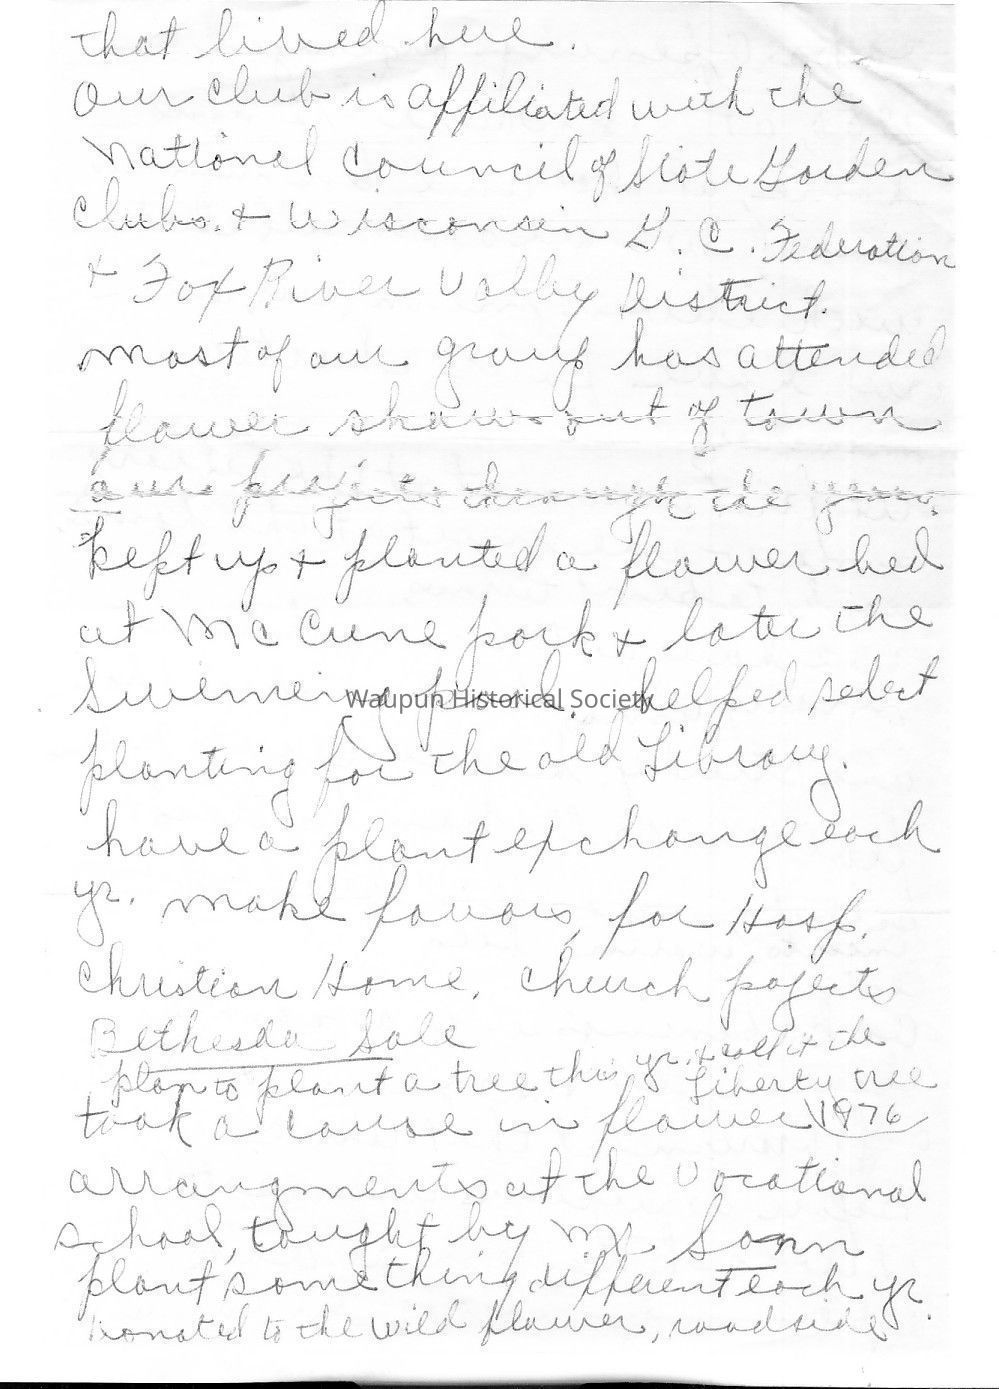 that lived here.
Our club is affiliated with the
National Council of State Garden
Clubs. + Wisconsin G. C. Federation
+ Fox River Valley District.
most of our group has attended
flower shows out of town
our projects through the years.
kept up + planted a flower bed
at McCune park + later the
Swimming pool. helped select
Waupun Historical Society
planting for the old Library.
have a plant exchange each
yr. make favors, for Hosp.
Christian Home, church pojects
Bethesda Sale
plan to plant a tree this yr. + call it the
Liberty tree
took a course in flower 1976
arrangments at the Vocational
school, taught by Mr Sonn
plant something different each yr.
Donated to the wild flower, roadside